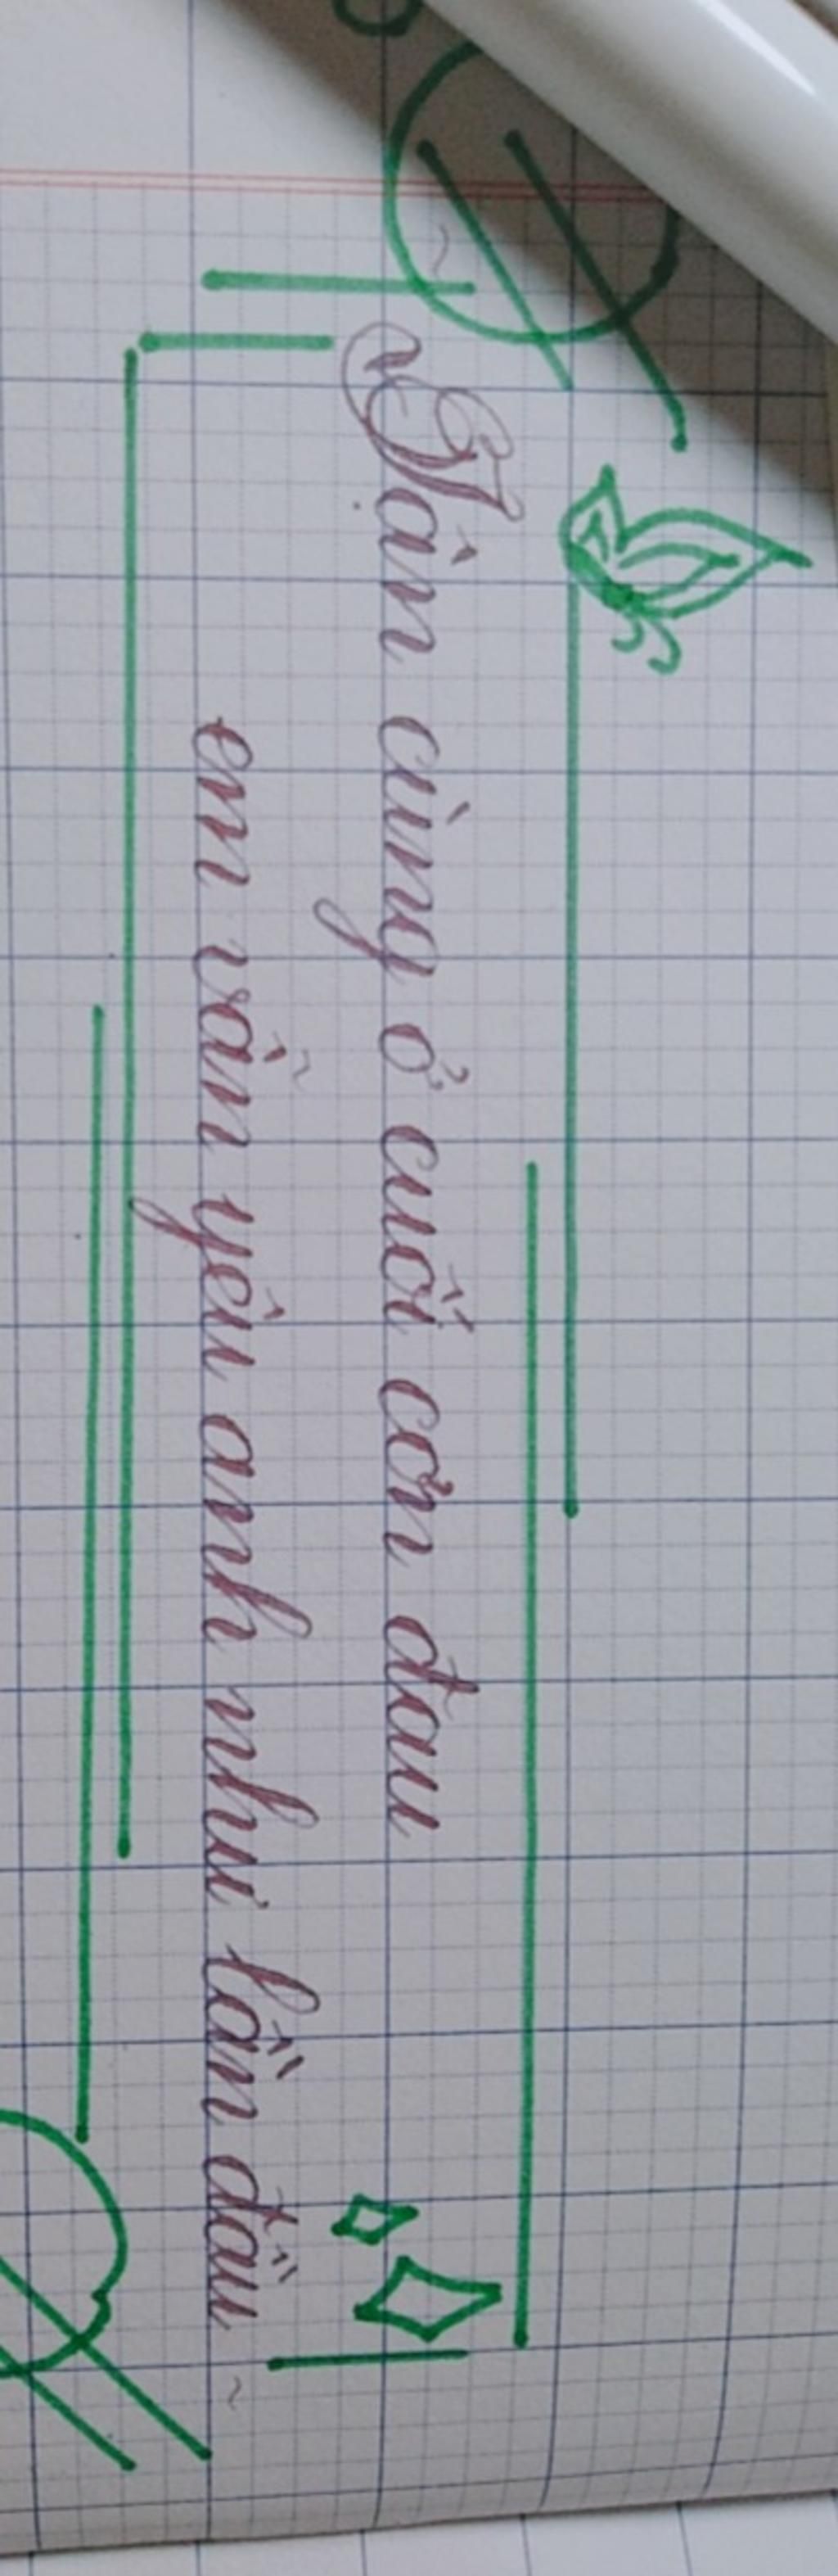 ~ Tận cùng ở cuối cơn đau
em vẫn yêu anh như lần đầu ~